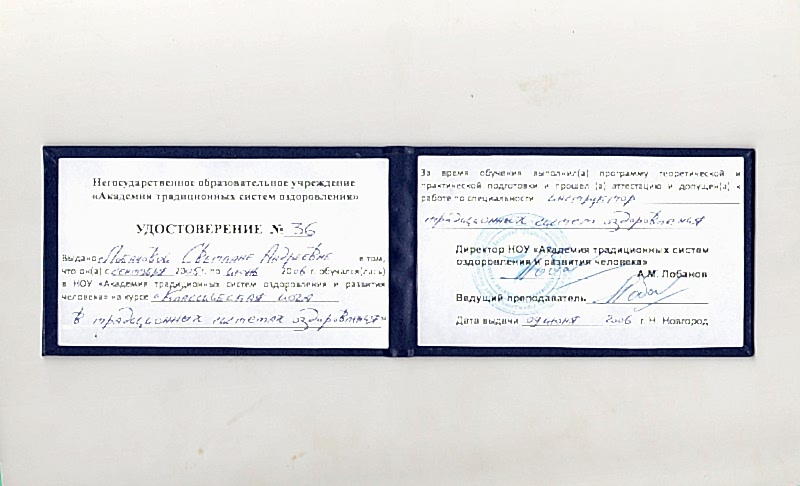 Негосударственное образовательное учреждение
«Академия традиционных систем оздоровления»
УДОСТОВЕРЕНИЕ № 36
Выдано Лобановой Светлане Андреевне в том,
что он(а) с сентября 2005 г. по июнь 2006 г. обучался(лась)
в НОУ «Академия традиционных систем оздоровления и развития
человека» на курсе «Классическая йога
в традиционных системах оздоровления»
За время обучения выполнил(а) программу теоретической и
практической подготовки и прошел (а) аттестацию и допущен(а) к
работе по специальности инструктор
традиционных систем оздоровления
Директор НОУ «Академия традиционных систем
оздоровления и развития человека»
А.М. Лобанов
Ведущий преподаватель
Дата выдачи 09 июня 2006 г. Н. Новгород